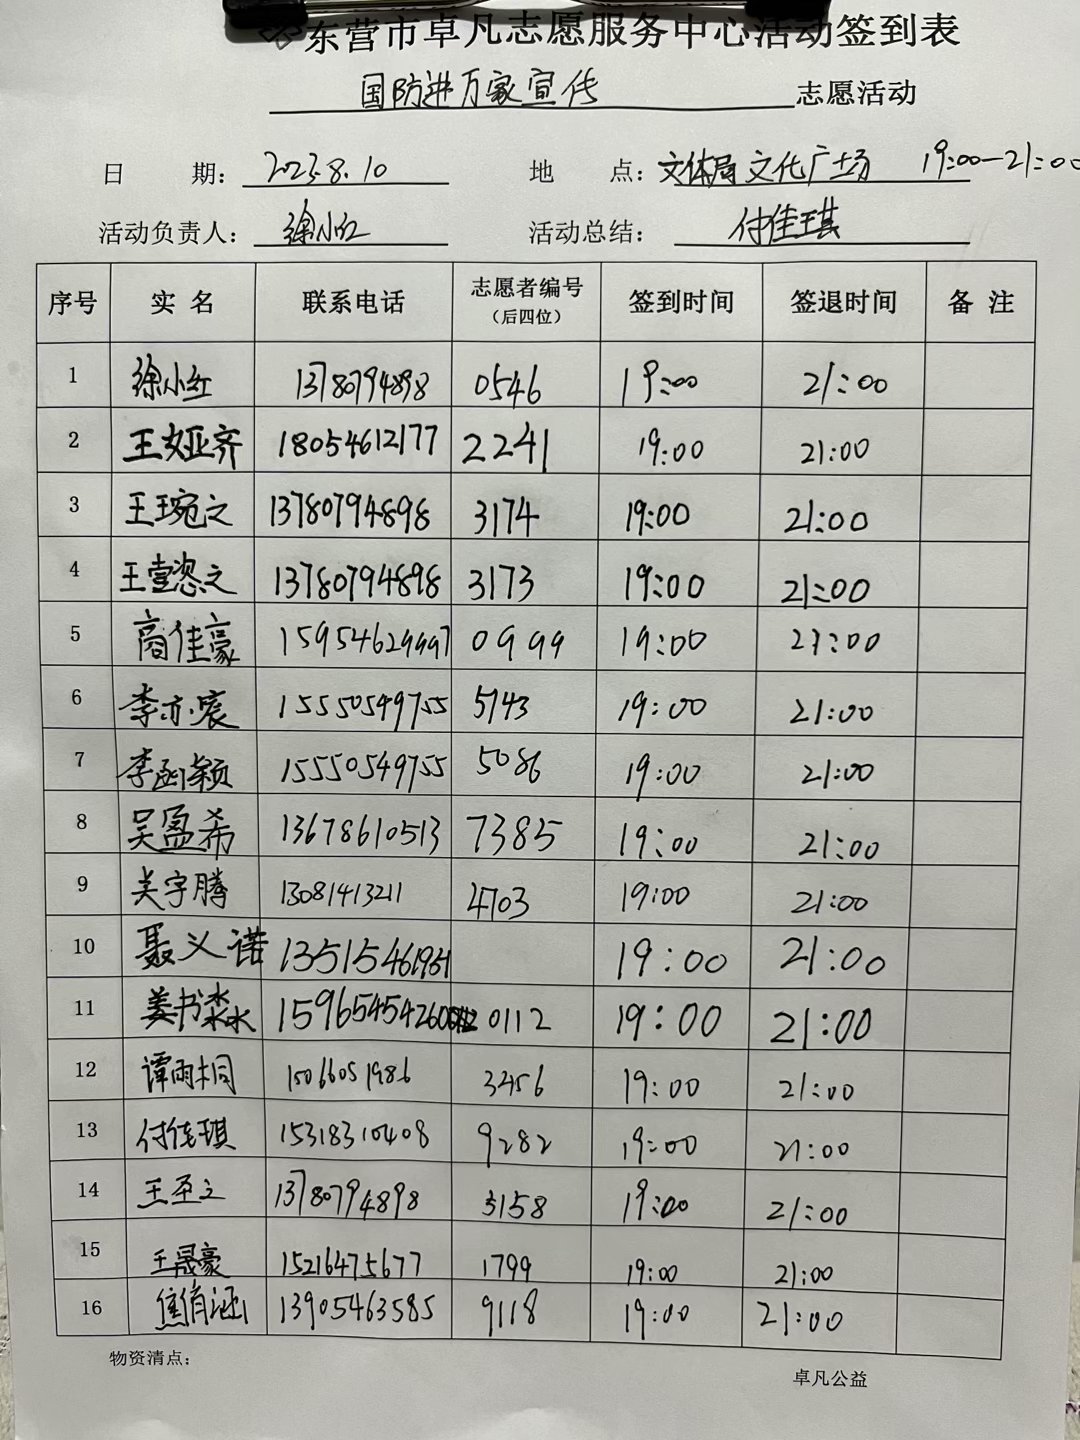 东营市卓凡志愿服务中心活动签到表
国防进万家宣传 志愿活动
日 期: 2023.8.10 地 点: 文体局文化广场 19:00-21:00
活动负责人: 徐小红 活动总结: 付佳琪
序号 实 名 联系电话 志愿者编号 (后四位) 签到时间 签退时间 备 注
1 徐小红 13780794898 0546 19:00 21:00
2 王姣亚齐 18054612177 2241 19:00 21:00
3 王琬之 13780794898 3174 19:00 21:00
4 王壹恣之 13780794898 3173 19:00 21:00
5 商佳豪 15954629997 0999 19:00 21:00
6 李亦宸 15550549755 5743 19:00 21:00
7 李函颖 15550549755 5086 19:00 21:00
8 吴盈希 13678610513 7385 19:00 21:00
9 吴宇腾 13081413211 4703 19:00 21:00
10 聂义诺 13515461951 19:00 21:00
11 姜书淼 0112 19:00 21:00
12 谭雨桐 15066051986 3456 19:00 21:00
13 付佳琪 15318310408 9282 19:00 21:00
14 王圣之 13780794898 3158 19:00 21:00
15 王晟豪 15216475677 1799 19:00 21:00
16 焦俏涵 13905463585 9118 19:00 21:00
物资清点:
卓凡公益